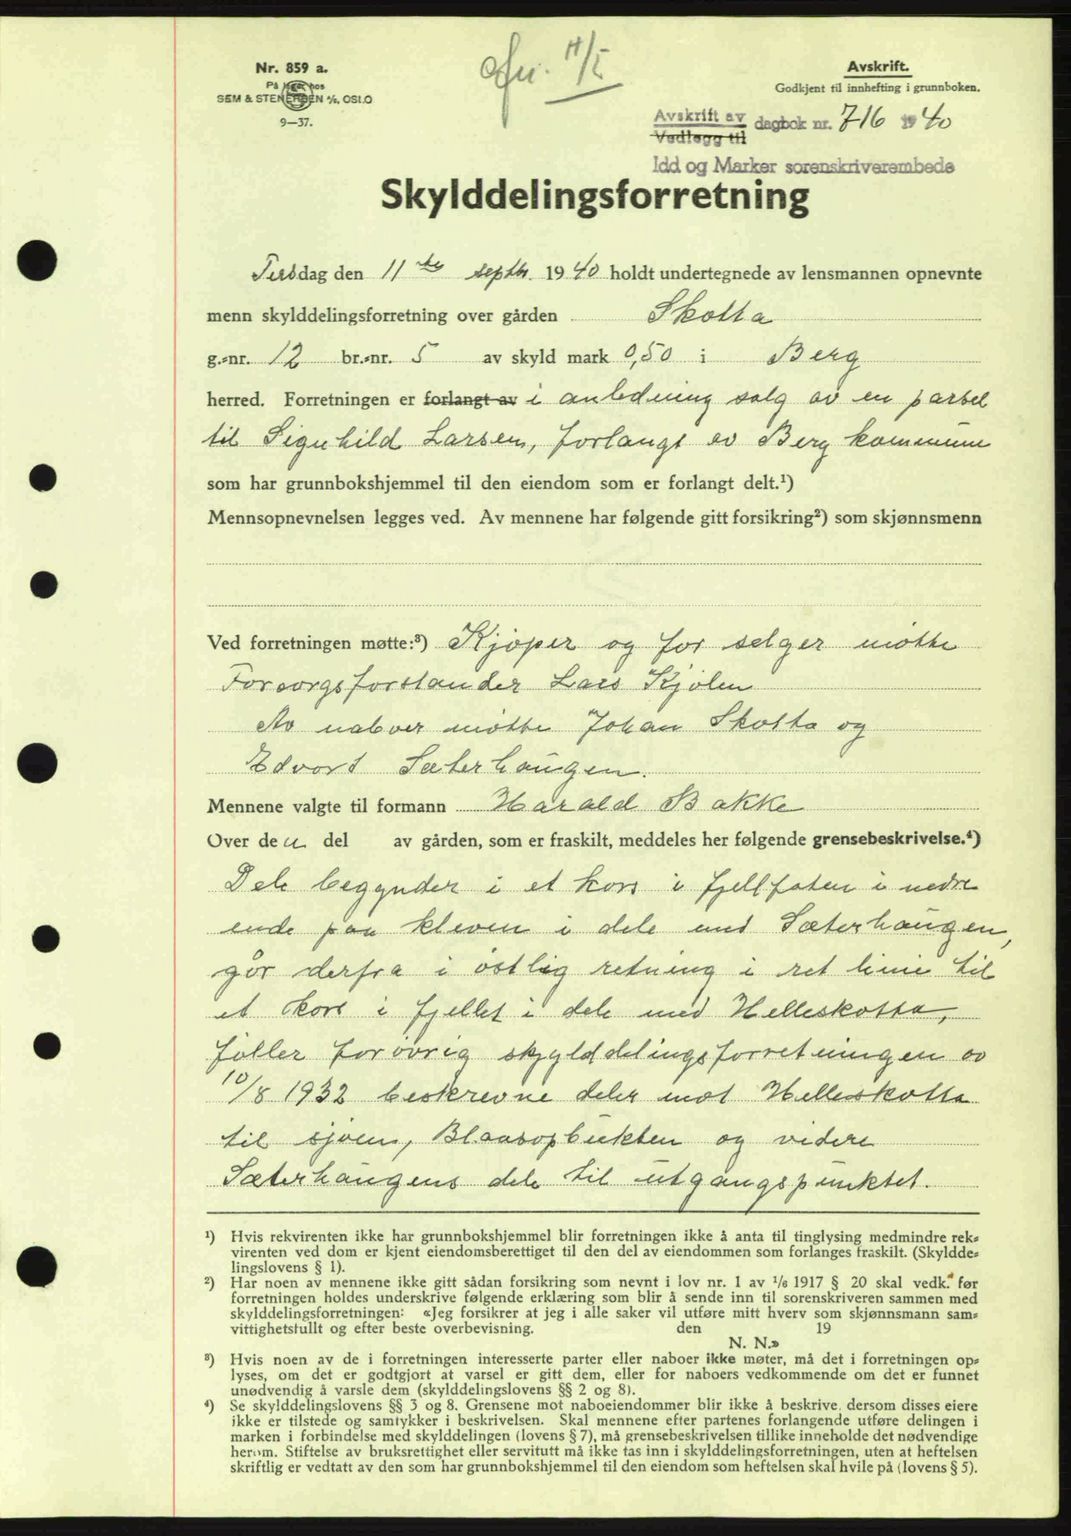 Nr. 859 a.
På lager hos
SEM & STENERSEN A/S, OSLO
9—37.
Avskrift.
Godkjent til innhefting i grunnboken.
Avskrift av
Vedlegg til
dagbok nr. 716 1940
Idd og Marker sorenskriverembede
Skylddelingsforretning
Tirsdag den 11te septbr. 1940 holdt undertegnede av lensmannen opnevnte
menn skylddelingsforretning over gården Skotta
g.-nr. 12 br.-nr. 5 av skyld mark 0,50 i Berg
herred. Forretningen er forlangt av i anledning salg av en parsel
til Signhild Larsen, forlangt av Berg kommune
som har grunnbokshjemmel til den eiendom som er forlangt delt.¹)
Mennsopnevnelsen legges ved. Av mennene har følgende gitt forsikring²) som skjønnsmenn
Ved forretningen møtte:³) Kjøper og for selger møtte
Forsorgsforstander Lars Kjølen
Av naboer møtte Johan Skotta og
Edvart Sæterhaugen.
Mennene valgte til formann Harald Bakke
Over den del av gården, som er fraskilt, meddeles her følgende grensebeskrivelse.⁴)
Dele begynder i et kors i fjellfoten i nedre
ende paa kleven i dele med Sæterhaugen,
går derfra i østlig retning i ret linie til
et kors i fjellet i dele med Helleskotta,
føller forøvrig skylddelingsforretningen av
10/8 1932 beskrevne deler mot Helleskotta
til sjøen, Blaasopbukten og videre
Sæterhaugens dele til utgangspunktet.
¹) Hvis rekvirenten ikke har grunnbokshjemmel blir forretningen ikke å anta til tinglysing medmindre rek-
virenten ved dom er kjent eiendomsberettiget til den del av eiendommen som forlanges fraskilt. (Skyldde-
lingslovens § 1).
²) Har noen av mennene ikke gitt sådan forsikring som nevnt i lov nr. 1 av 1/6 1917 § 20 skal vedk. før
forretningen holdes underskrive følgende erklæring som blir å sende inn til sorenskriveren sammen med
skylddelingsforretningen: «Jeg forsikrer at jeg i alle saker vil utføre mitt hverv som skjønnsmann sam-
vittighetsfullt og efter beste overbevisning. den 19
N. N.»
³) Hvis noen av de i forretningen interesserte parter eller naboer ikke møter, må det i forretningen op-
lyses, om det er godtgjort at varsel er gitt dem, eller for naboers vedkommende om det er funnet
unødvendig å varsle dem (skylddelingslovens §§ 2 og 8).
⁴) Se skylddelingslovens §§ 3 og 8. Grensene mot naboeiendommer blir ikke å beskrive, dersom disses eiere
ikke er tilstede og samtykker i beskrivelsen. Skal mennene efter partenes forlangende utføre delingen i
marken i forbindelse med skylddelingen (lovens § 7), må grensebeskrivelsen tillike inneholde det nødvendige
herom. Stiftelse av bruksrettighet eller servitutt må ikke tas inn i skylddelingsforretningen, uten at heftelsen
skriftlig er vedtatt av den som har grunnbokshjemmel til den eiendom som heftelsen skal hvile på (lovens § 5).